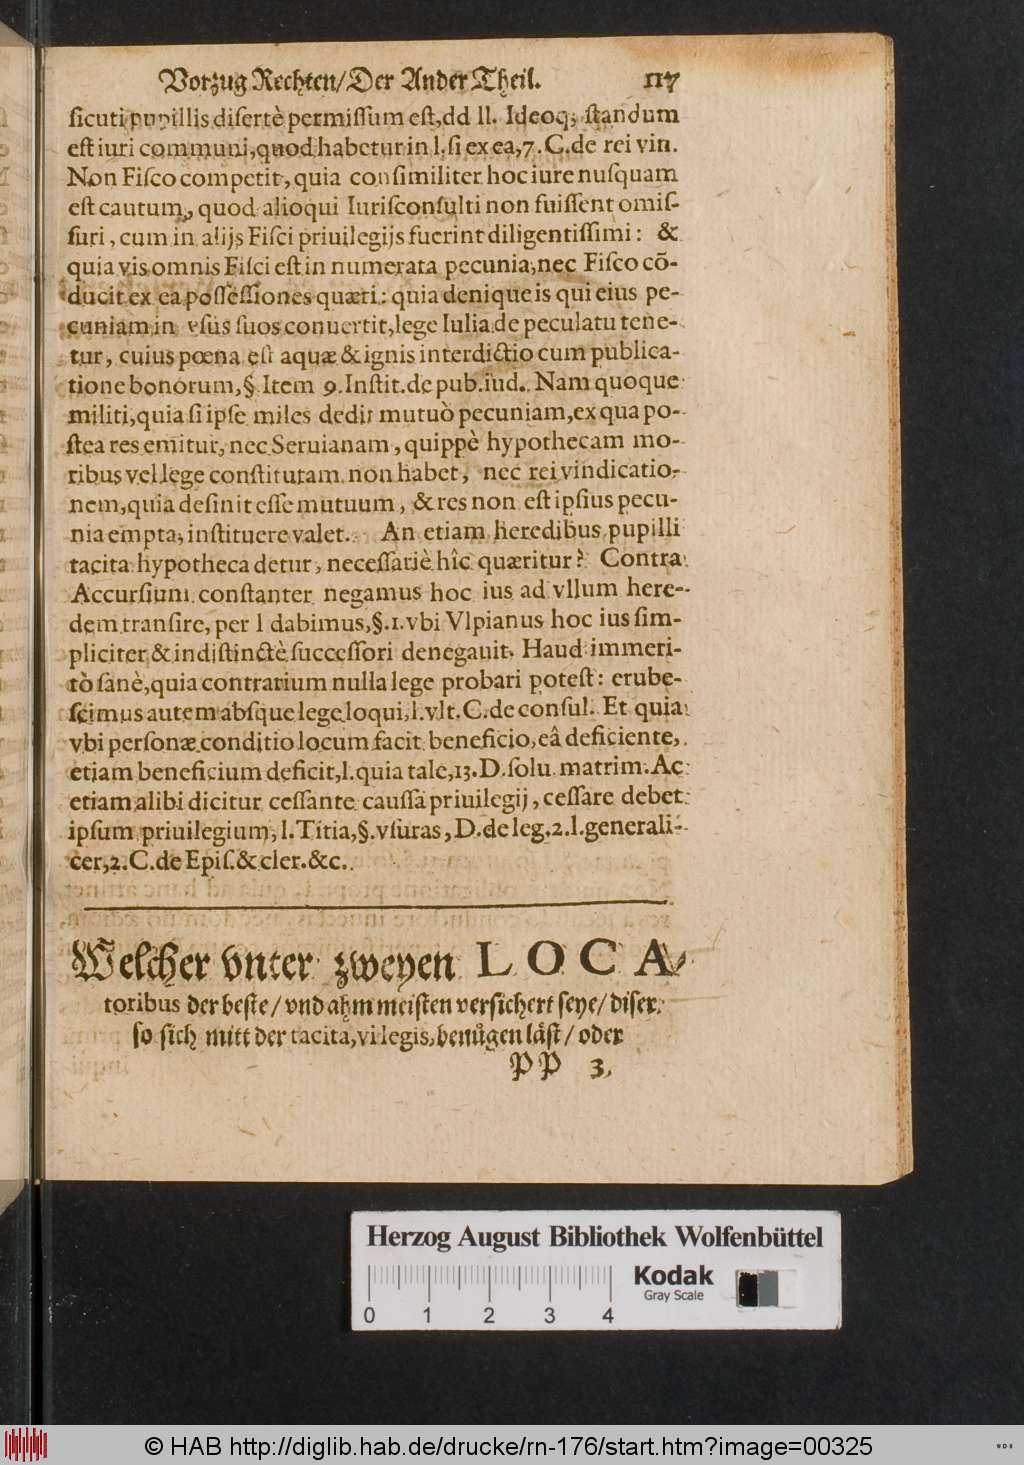 Vorzug Rechten/Der Ander Theil. 117
ſicuti pupillis diſertè permiſſum eſt,dd ll. Ideoq; ſtandum
eſt iuri communi,quod habetur in l.ſi ex ea,7.C.de rei vin.
Non Fiſco competit, quia conſimiliter hoc iure nuſquam
eſt cautum, quod alioqui Iuriſconſulti non fuiſſent omiſ-
ſuri, cum in alijs Fiſci priuilegijs fuerint diligentiſſimi: &
quia vis omnis Fiſci eſt in numerata pecunia, nec Fiſco cõ-
ducit ex ea poſſeſſiones quæri: quia denique is qui eius pe-
cuniam in vſus ſuos conuertit,lege Iulia de peculatu tene-
tur, cuius pœna eſt aquæ & ignis interdictio cum publica-
tione bonorum,§. Item 9.Inſtit.de pub.iud. Nam quoque
militi,quia ſi ipſe miles dedit mutuò pecuniam,ex qua po-
ſtea res emitur, nec Seruianam, quippè hypothecam mo-
ribus vel lege conſtitutam non habet, nec rei vindicatio-
nem,quia deſinit eſſe mutuum, & res non eſt ipſius pecu-
nia empta, inſtituere valet. An etiam heredibus pupilli
tacita hypotheca detur, neceſſariè hîc quæritur? Contra
Accurſium conſtanter negamus hoc ius ad vllum here-
dem tranſire, per l dabimus,§.1.vbi Vlpianus hoc ius ſim-
pliciter & indiſtinctè ſucceſſori denegauit. Haud immeri-
tò ſanè,quia contrarium nulla lege probari poteſt: erube-
ſcimus autem abſque lege loqui,l.vlt.C.de conſul. Et quia
vbi perſonæ conditio locum facit beneficio,eâ deficiente,
etiam beneficium deficit,l.quia tale,13.D.ſolu.matrim. Ac
etiam alibi dicitur ceſſante cauſſa priuilegij, ceſſare debet
ipſum priuilegium, l.Titia,§.vſuras, D.de leg.2.l.generali-
ter,2.C.de Epiſ.& cler.&c.
Welcher vnter zweyen LOCA-
toribus der beſte/vnd ahm meiſten verſichert ſeye/diſer
ſo ſich mitt der tacita,vi legis,benügen läſt/oder
PP 3
Herzog August Bibliothek Wolfenbüttel
Kodak
Gray Scale
0 1 2 3 4
© HAB http://diglib.hab.de/drucke/rn-176/start.htm?image=00325